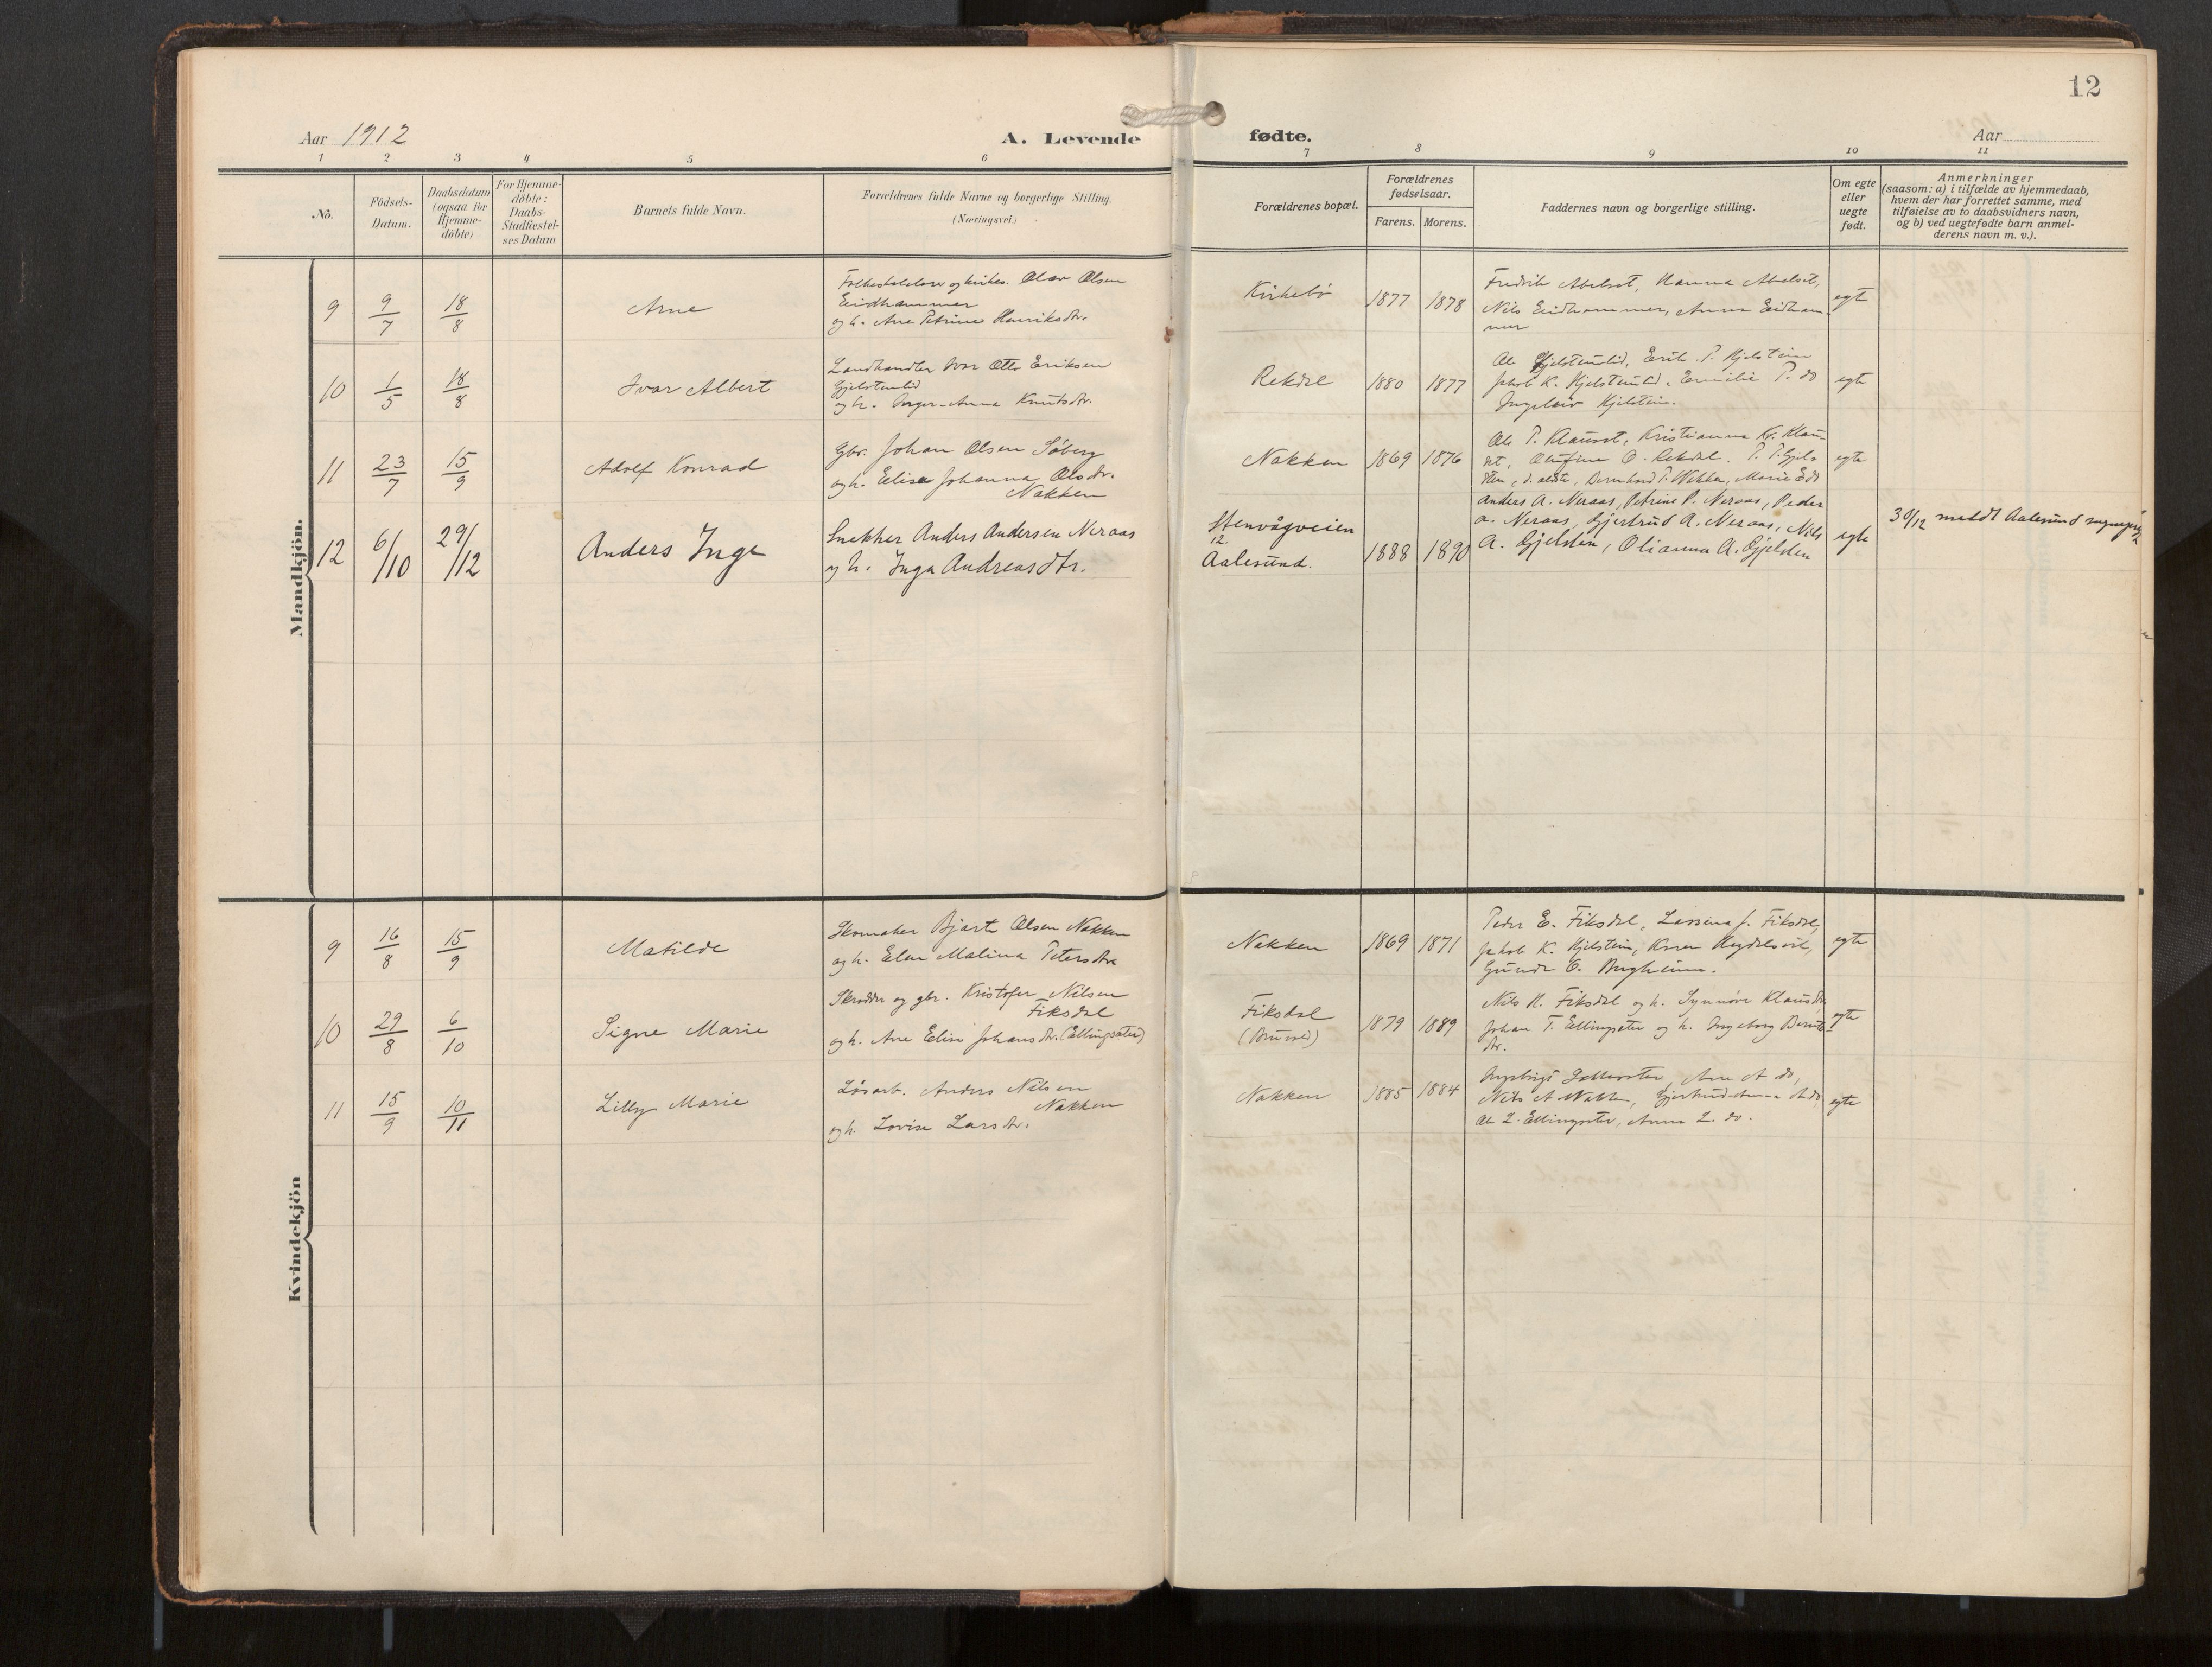 12
Aar 1912
A. Levende
fødte.
Aar
1 2 3 4 5 6 7 8 9 10 11
No.
Födsels-
Datum.
Daabsdatum
(ogsaa for
Hjemme-
döbte)
For Hjemme-
döbte:
Daabs-
Stadfestel-
ses Datum
Barnets fulde Navn.
Forældrenes fulde Navne og borgerlige Stilling.
(Næringsvei.)
Forældrenes bopæl.
Forældrenes
fødselsaar.
Farens. Morens.
Faddernes navn og borgerlige stilling.
Om egte
eller
uegte
født.
Anmerkninger
(saasom: a) i tilfælde av hjemmedaab,
hvem der har forrettet samme, med
tilføielse av to daabsvidners navn,
og b) ved uegtefødte barn anmel-
derens navn m. v.).
Mandkjön.
9 9/7 18/8 Arne
Olav Olsen
Eidhammer
og h. Ane Petrine Henriksdtr.
Kirkebø 1877 1878
Fredrik Abelset, Hanna Abelset,
Nils Eidhammer, Anna Eidham-
mer
egte
10 1/5 18/8 Ivar Albert
Landhandler Ivar Otto Eriksen
Gjelstenlid
og h. Inger-Anna Knutsdtr.
Rekdal 1880 1877
Ole Gjelstenlid, Erik P. Hjelstein
Jakob K. Hjelstenlid, Emilie P. do
Hjelstein.
egte
11 23/7 15/9 Adolf Konrad
Gbr. Johan Olsen Søberg
og h. Elise Johanna Olsdtr.
Nakken
Nakken 1869 1876
Ole P. Klauset, Kristianna Kr. Klau-
set, Olufine O. Rekdal. P. P. Gjel-
sten, d. eldste, Bernhard P. Nakken, Marie E do
egte
12 6/10 29/12 Anders Inge
Snekker Anders Andersen Neraas
og h. Inga Andreasdtr.
Stenvågveien
12.
Aalesund.
1888 1890
Anders A. Neraas, Petrine P. Neraas, Peder
A. Neraas, Gjertrud A. Neraas, Nils
A. Gjelsten, Olianna A. Gjelsten
egte
30/12 meldt Aalesund
Kvindekjön
9 16/8 15/9 Matilde
Skomaker Bjart Olsen Nakken
og h. Elen Malina Petersdtr
Nakken 1869 1871
Peder E. Fiksdal, Lassina J. Fiksdal,
Jakob K. Hjelstein, Karen
Gunda O. Bugheim.
egte
10 29/8 6/10 Signe Marie
Skrædder og gbr. Kristofer Nilsen
Fiksdal
og h. Ane Elise Johansdtr. (Ellingsæter)
Fiksdal
1879 1889
Nils K. Fiksdal og h. Synnøve Klausdtr,
Johan T. Ellingsæter og h. Ingeborg Bernts-
dtr.
egte
11 15/9 10/11 Lilly Marie
Løsarb. Anders Nilsen
Nakken
og h. Lovise Larsdtr.
Nakken 1885 1884
Ane A do,
Nils A Nakken, Gjertrud Anna A do,
Ole L. Ellingsæter, Anna L. do.
egte